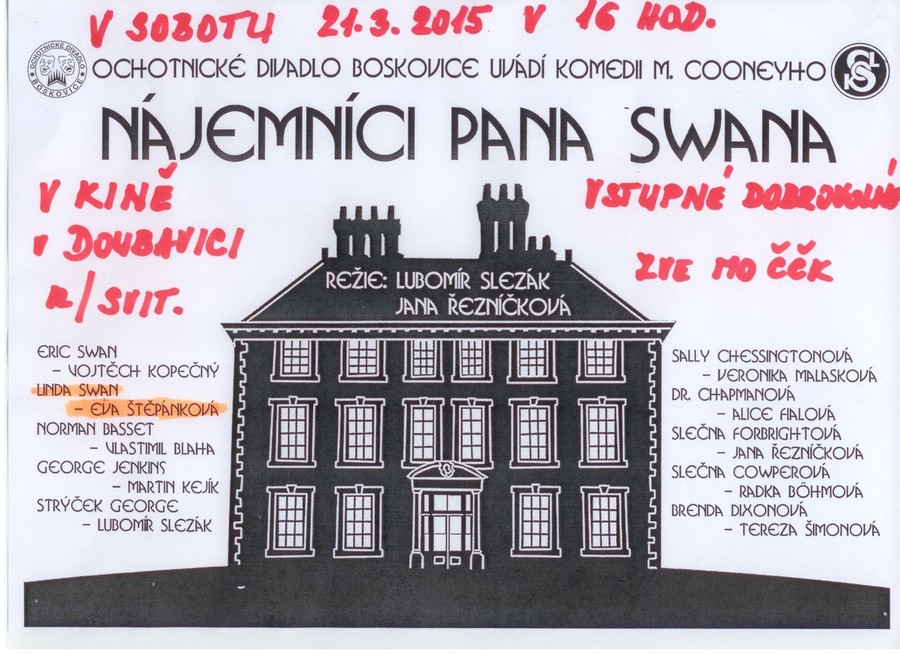 V SOBOTU 21.3.2015 V 16 HOD.
OCHOTNICKÉ DIVADLO BOSKOVICE
OCHOTNICKÉ DIVADLO BOSKOVICE UVÁDÍ KOMEDII M. COONEYHO
NÁJEMNÍCI PANA SWANA
V KINĚ
V DOUBAVICI
n/SVIT.
VSTUPNÉ DOBROVOLNÉ
ZVE MO ČČK
REŽIE: LUBOMÍR SLEZÁK
JANA ŘEZNÍČKOVÁ
ERIC SWAN
- VOJTĚCH KOPEČNÝ
LINDA SWAN
- EVA ŠTĚPÁNKOVÁ
NORMAN BASSET
- VLASTIMIL BLAHA
GEORGE JENKINS
- MARTIN KEJÍK
STRÝČEK GEORGE
- LUBOMÍR SLEZÁK
SALLY CHESSINGTONOVÁ
- VERONIKA MALASKOVÁ
DR. CHAPMANOVÁ
- ALICE FIALOVÁ
SLEČNA FORBRIGHTOVÁ
- JANA ŘEZNÍČKOVÁ
SLEČNA COWPEROVÁ
- RADKA BÖHMOVÁ
BRENDA DIXONOVÁ
- TEREZA ŠIMONOVÁ